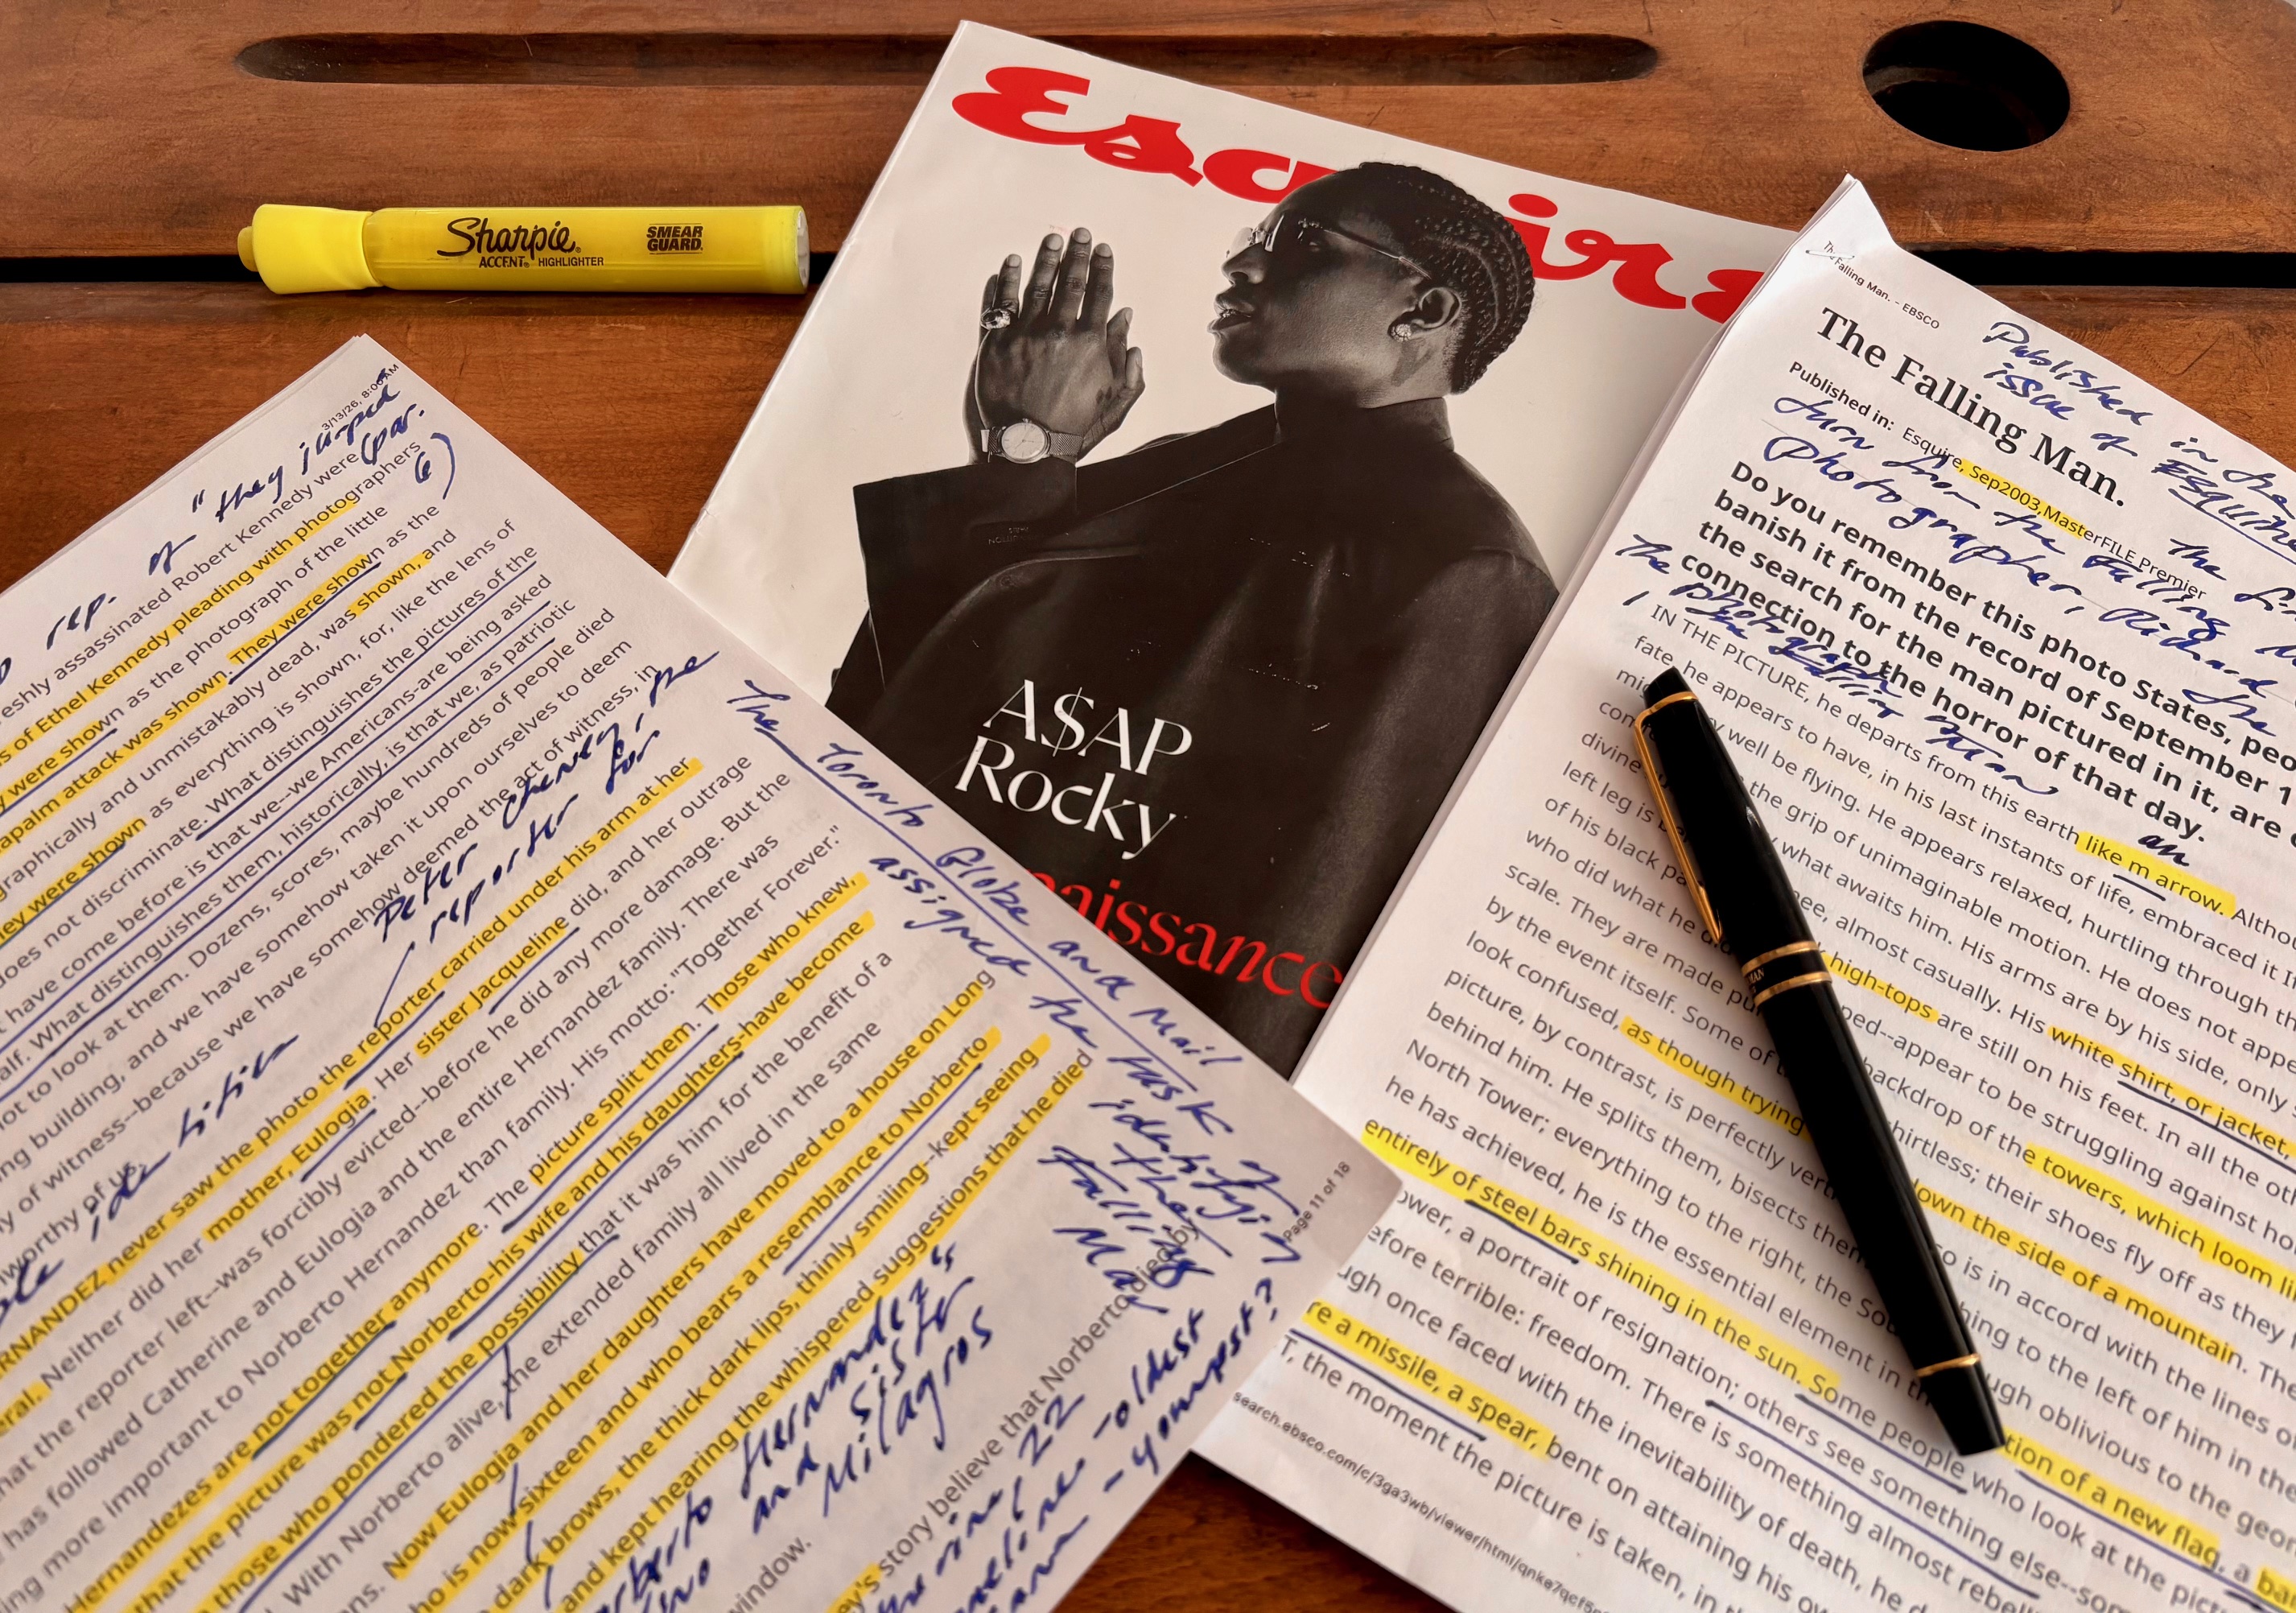 Sharpie
ACCENT HIGHLIGHTER
SMEAR
GUARD
Esquire
A$AP
Rocky
aissance
3/13/26, 8:00 AM
of "they jumped
(par.
6)
rep.
eshly assassinated Robert Kennedy were
s of Ethel Kennedy pleading with photographers
y were shown as the photograph of the little
apalm attack was shown. They were shown as the
graphically and unmistakably dead, was shown, and
hey were shown as everything is shown, for, like the lens of
does not discriminate. What distinguishes the pictures of the
have come before is that we--we Americans-are being asked
alf. What distinguishes them, historically, is that we, as patriotic
not to look at them. Dozens, scores, maybe hundreds of people died
ng building, and we have somehow taken it upon ourselves to deem
y of witness--because we have somehow deemed the act of witness, in
worthy of us.
Peter Cheney, the
reporter for
The Toronto Globe and Mail
assigned the task
of
identifying
the
Falling
Man
ERNANDEZ never saw the photo the reporter carried under his arm at her
eral. Neither did her mother, Eulogia. Her sister Jacqueline did, and her outrage
hat the reporter left--was forcibly evicted--before he did any more damage. But the
has followed Catherine and Eulogia and the entire Hernandez family. There was
ing more important to Norberto Hernandez than family. His motto: "Together Forever."
Hernandezes are not together anymore. The picture split them. Those who knew,
that the picture was not Norberto-his wife and his daughters-have become
those who pondered the possibility that it was him for the benefit of a
With Norberto alive, the extended family all lived in the same
ns. Now Eulogia and her daughters have moved to a house on Long
ho is now sixteen and who bears a resemblance to Norberto
dark brows, the thick dark lips, thinly smiling--kept seeing
and kept hearing the whispered suggestions that he died
window.
ey's story believe that Norberto died by
Page 11 of 18
Hernandez's
sister
and Milagros
22
-oldest
-youngest?
The Falling Man. - EBSCO
The Falling Man.
Published in the
issue of Esquire
Published in: Esquire, Sep2003, MasterFILE Premier
turn from the Falling
Photographer, Richard
the photograph
Do you remember this photo States, peo
banish it from the record of September 1
the search for the man pictured in it, are
connection to the horror of that day.
IN THE PICTURE, he departs from this earth like m arrow. Althou
an
fate, he appears to have, in his last instants of life, embraced it. I
mig ry well be flying. He appears relaxed, hurtling through th
con the grip of unimaginable motion. He does not appe
divine y what awaits him. His arms are by his side, only
left leg is b nee, almost casually. His white shirt, or jacket,
of his black pa high-tops are still on his feet. In all the oth
who did what he d ped--appear to be struggling against ho
scale. They are made pu backdrop of the towers, which loom li
by the event itself. Some of t hirtless; their shoes fly off as they
look confused, as though trying down the side of a mountain. The
picture, by contrast, is perfectly vert o is in accord with the lines o
behind him. He splits them, bisects them hing to the left of him in the
North Tower; everything to the right, the Sou ugh oblivious to the geom
he has achieved, he is the essential element in th tion of a new flag, a ban
entirely of steel bars shining in the sun. Some people who look at the pict
ower, a portrait of resignation; others see something else--som
efore terrible: freedom. There is something almost rebel
ugh once faced with the inevitability of death, he d
re a missile, a spear, bent on attaining his ow
T, the moment the picture is taken, in th
search.ebsco.com/c/3ga3wb/viewer/html/qnke7qcf5n